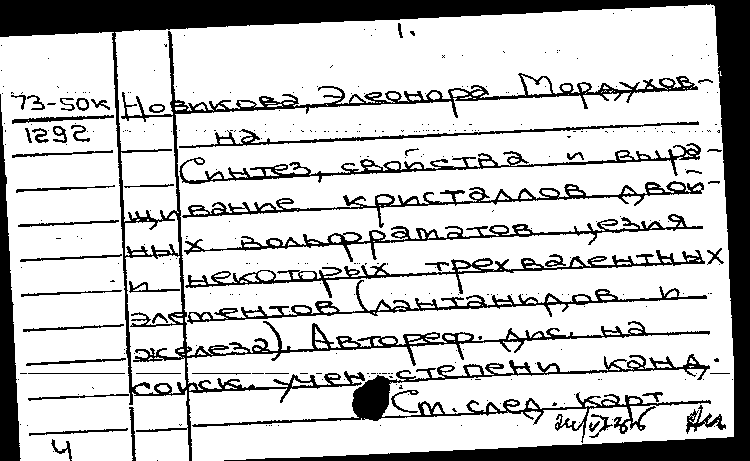 1.
73-50к Новикова, Элеонора Мордухов-
1292 на.
Синтез, свойства и выра-
щивание кристаллов двой-
ных вольфраматов цезия
и некоторых трехвалентных
элементов (лантанидов и
железа). Автореф. дис. на
соиск. учен. степени канд.
См. след. карт
4